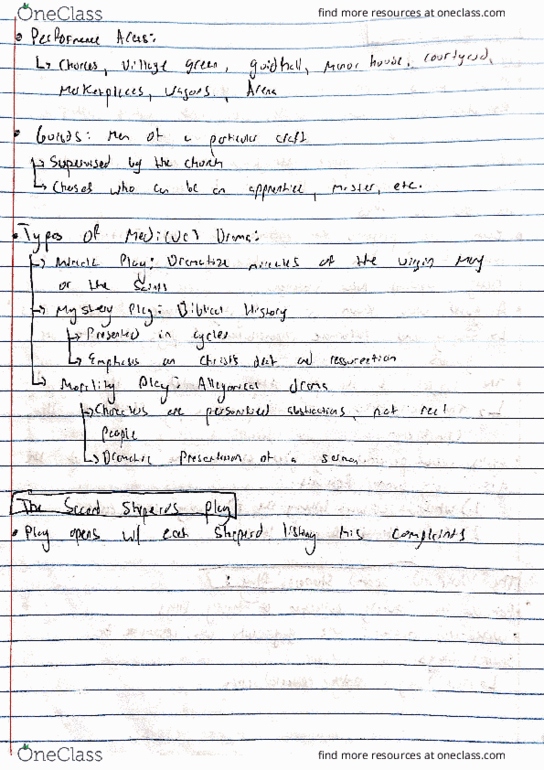 OneClass
find more resources at oneclass.com
• Performance Areas:
↳ Churches, Village green, guidhall, Manor house, courtyard,
Marketplaces, wagons, Arena
• Guilds: Men of a particular craft
↳ Supervised by the church
↳ Choses who can be an apprentice, master, etc.
• Types of Medieval Drama:
↳ Miracle Play: Dramatize miracles of the virgin Mary
or the Saints
↳ Mystery Play: Biblical History
↳ Presented in cycles
↳ Emphasis on Christ's death and ressurection
↳ Morality Play: Allegorical drama
↳ Characters are personified abstractions, not real
People
↳ Dramatic Presentation of a sermon.
The Second Sheperds Play
• Play opens w/ each Sheperd listing his complaints
OneClass
find more resources at oneclass.com